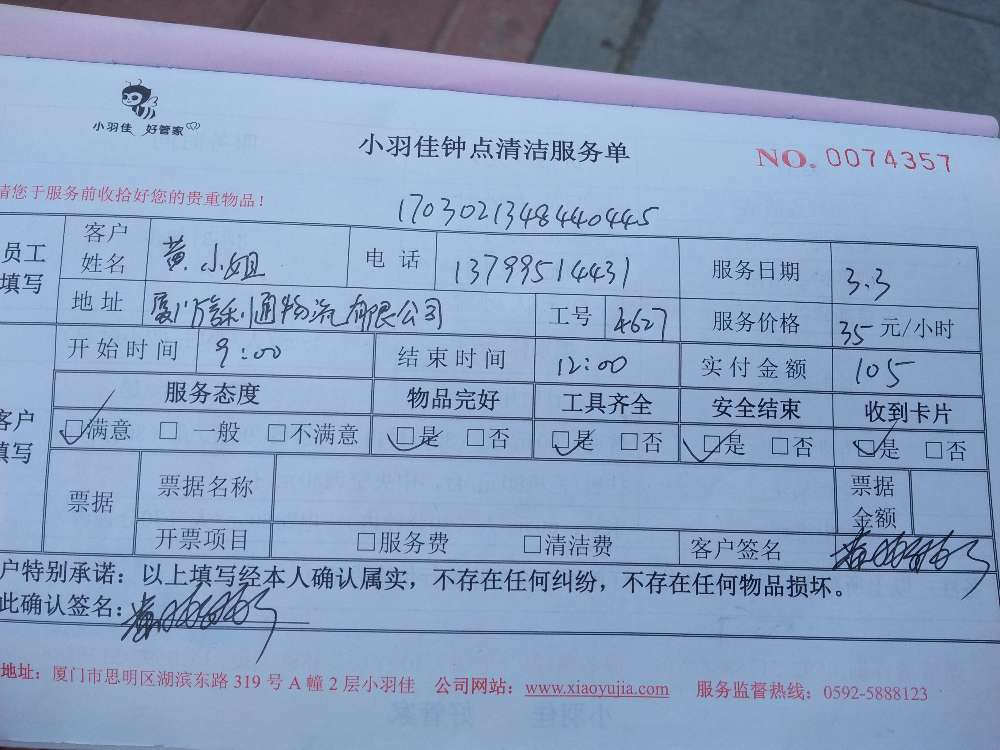 小羽佳 好管家
小羽佳钟点清洁服务单 NO. 0074357
请您于服务前收拾好您的贵重物品！
1703021348440445
员工填写 客户姓名 黄小姐 电话 13799514431 服务日期 3.3
地址 厦门信利通物流有限公司 工号 4627 服务价格 35 元/小时
开始时间 9:00 结束时间 12:00 实付金额 105
客户填写 服务态度 物品完好 工具齐全 安全结束 收到卡片
☑满意 □一般 □不满意 ☑是 □否 ☑是 □否 ☑是 □否 ☑是 □否
票据 票据名称 票据金额
开票项目 □服务费 □清洁费 客户签名
户特别承诺：以上填写经本人确认属实，不存在任何纠纷，不存在任何物品损坏。
此确认签名：
地址：厦门市思明区湖滨东路 319 号 A 幢 2 层小羽佳 公司网站：www.xiaoyujia.com 服务监督热线：0592-5888123